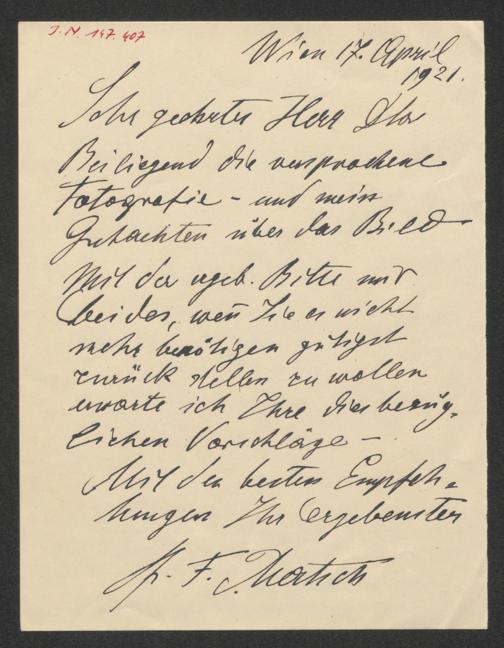 J. N. 147.407
Wien 17. April
1921.
Sehr geehrter Herr
Beiliegend die versprochene
Fotografie – und mein
Gutachten über das Bild
Mit der ergeb. Bitte mir
beides, wen̄ Sie es nicht
mehr benötigen gütigst
zurück stellen zu wollen
erwarte ich Ihre diesbezüg-
lichen Vorschläge –
Mit den besten Empfeh-
lungen Ihr ergebenster
F. Matsch